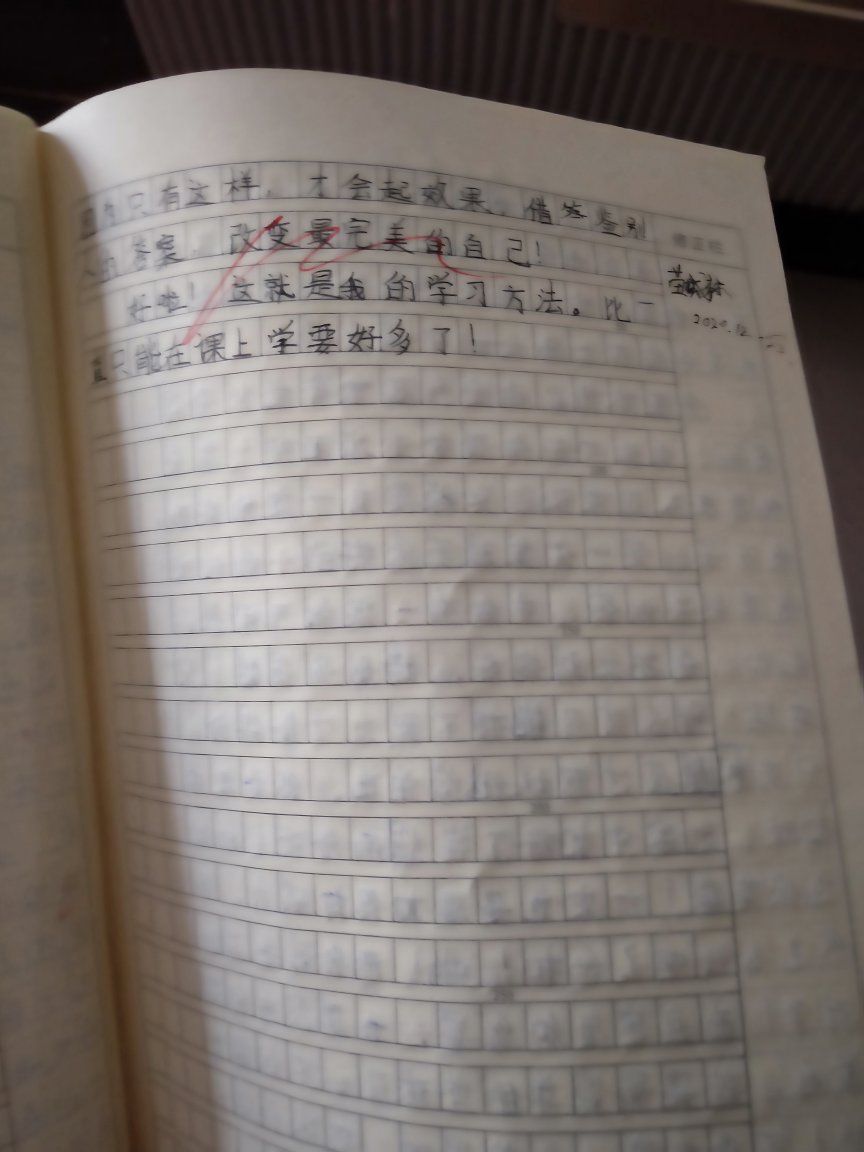 因为只有这样，才会起效果，借签鉴别
人的答案，改变最完美的自己！
好啦！这就是我的学习方法。比一
直只能在课上学要好多了！
修正栏